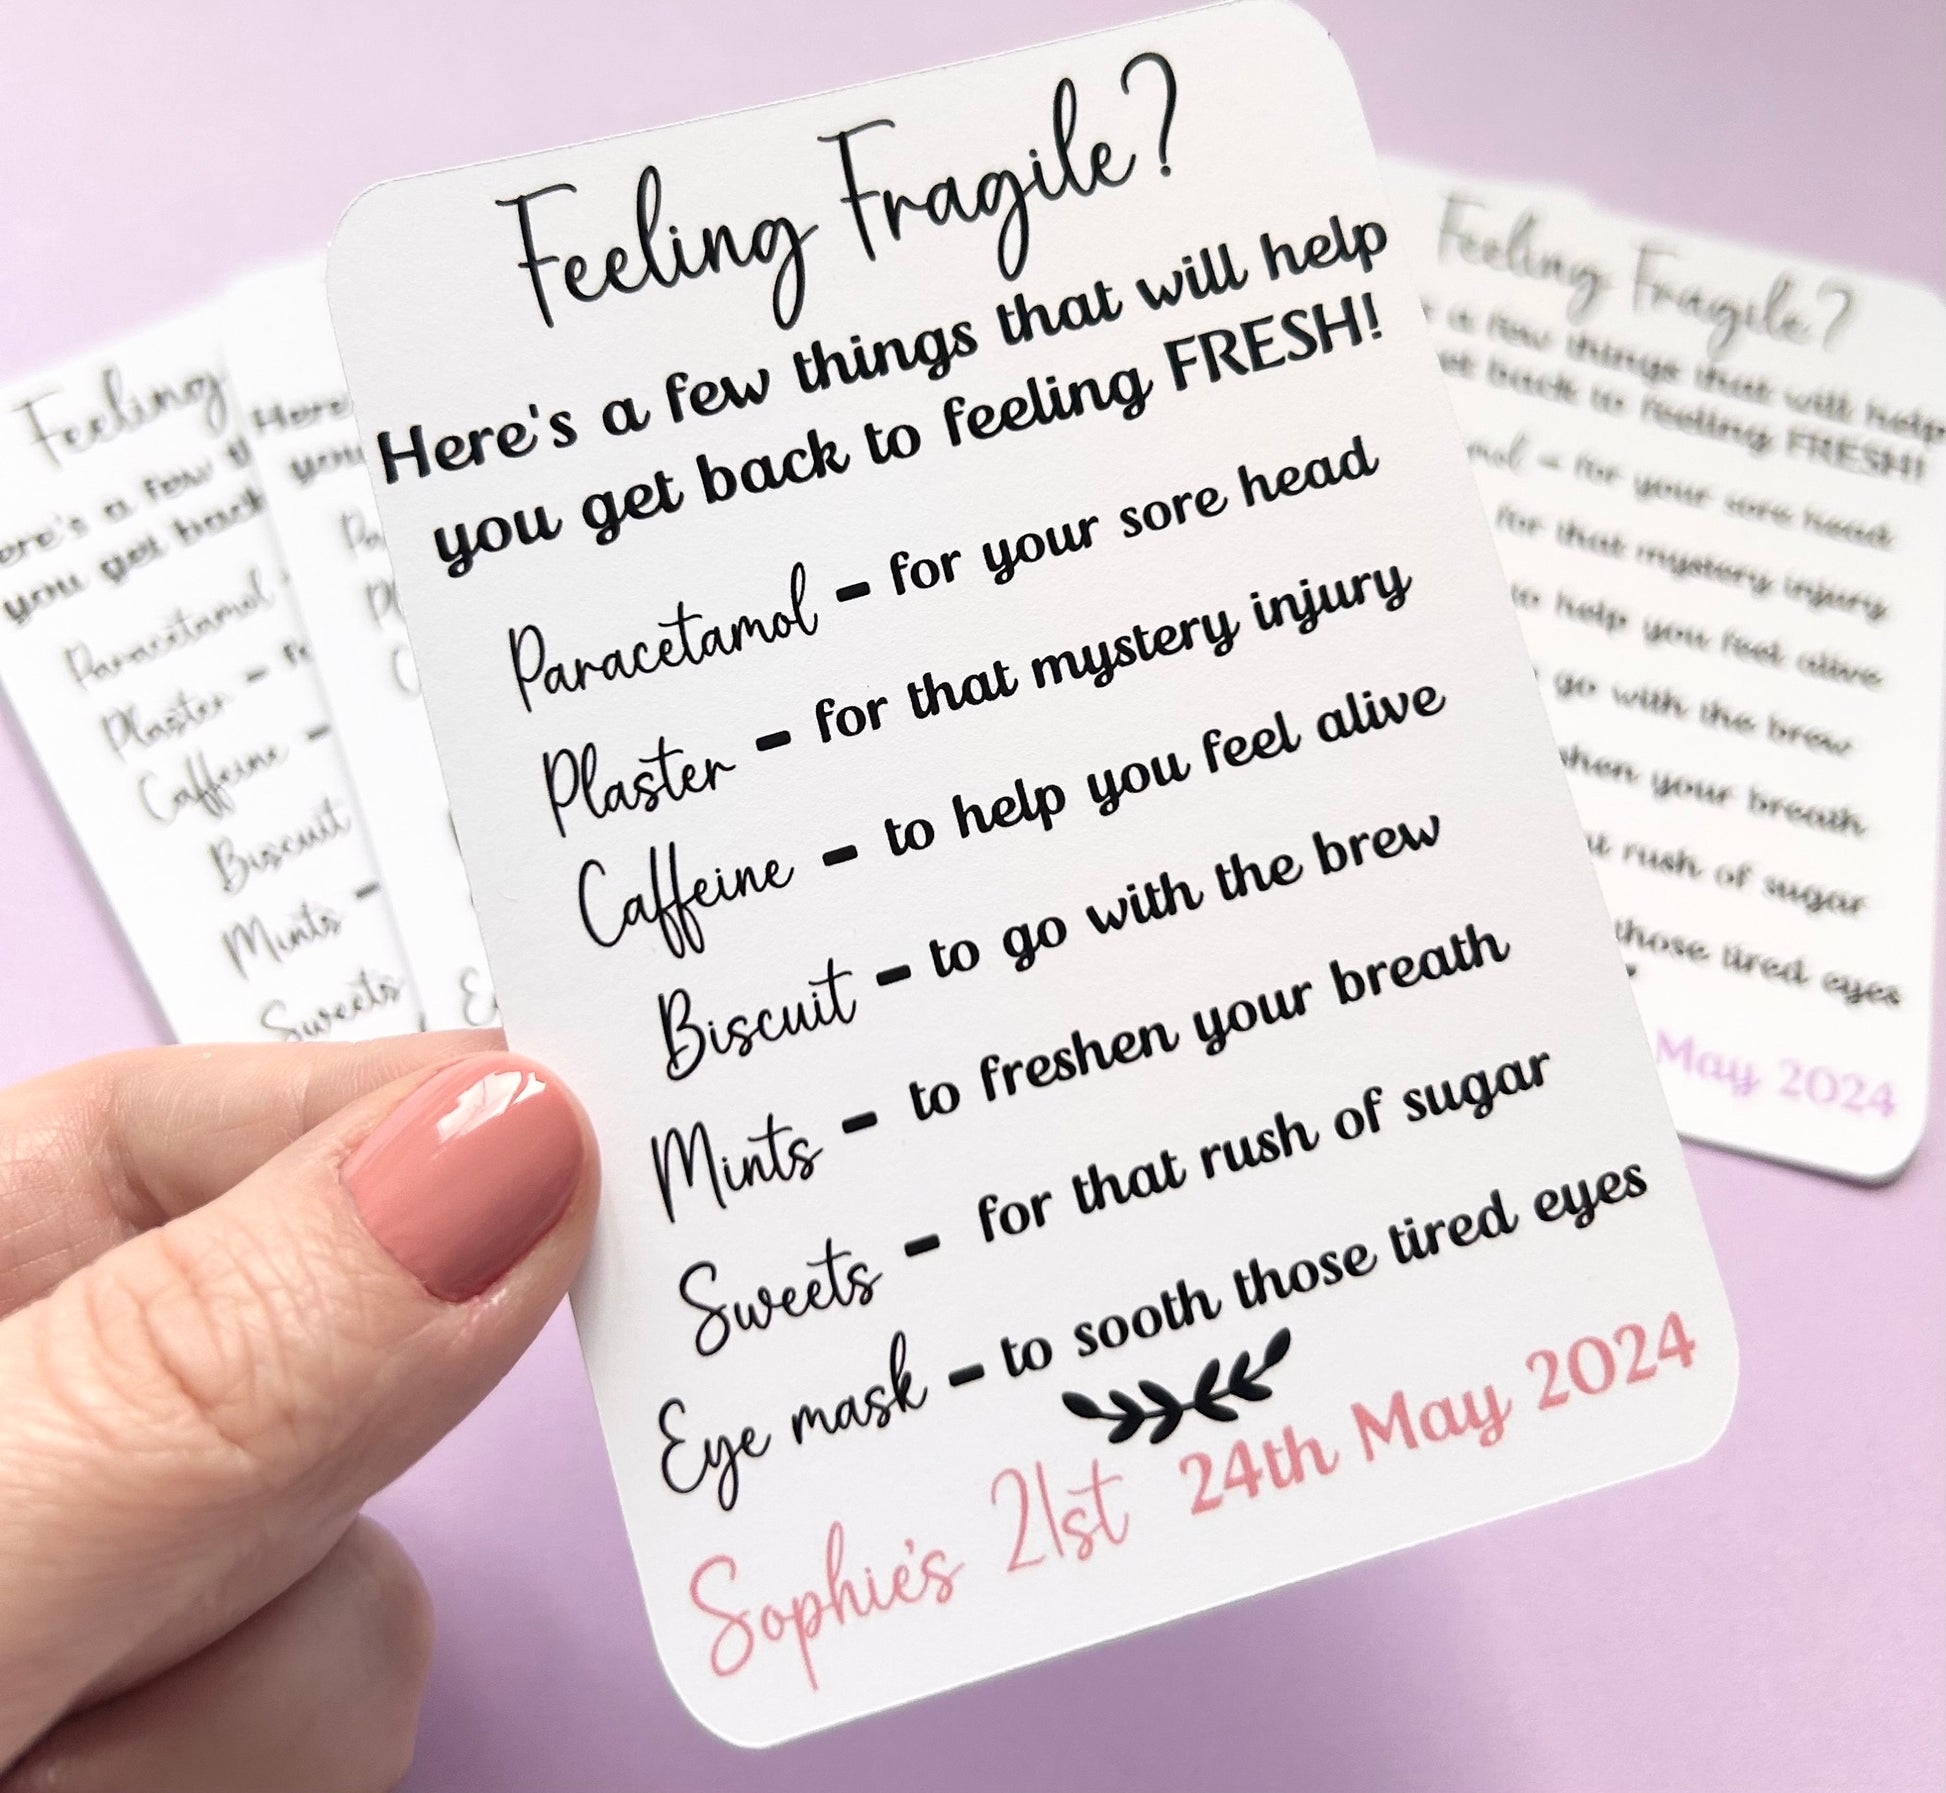 Feeling Fragile?
Here's a few things that will help
you get back to feeling FRESH!
Paracetamol - for your sore head
Plaster - for that mystery injury
Caffeine - to help you feel alive
Biscuit - to go with the brew
Mints - to freshen your breath
Sweets - for that rush of sugar
Eye mask - to sooth those tired eyes
Sophie's 21st 24th May 2024
Feeling
ere's a few
you get back
Paracetamol
Plaster -
Caffeine -
Biscuit
Mints -
Sweets
Here
you
Feeling Fragile?
a few things that will help
back to feeling FRESH!
- for your sore head
for that mystery injury
to help you feel alive
go with the brew
shen your breath
rush of sugar
those tired eyes
May 2024